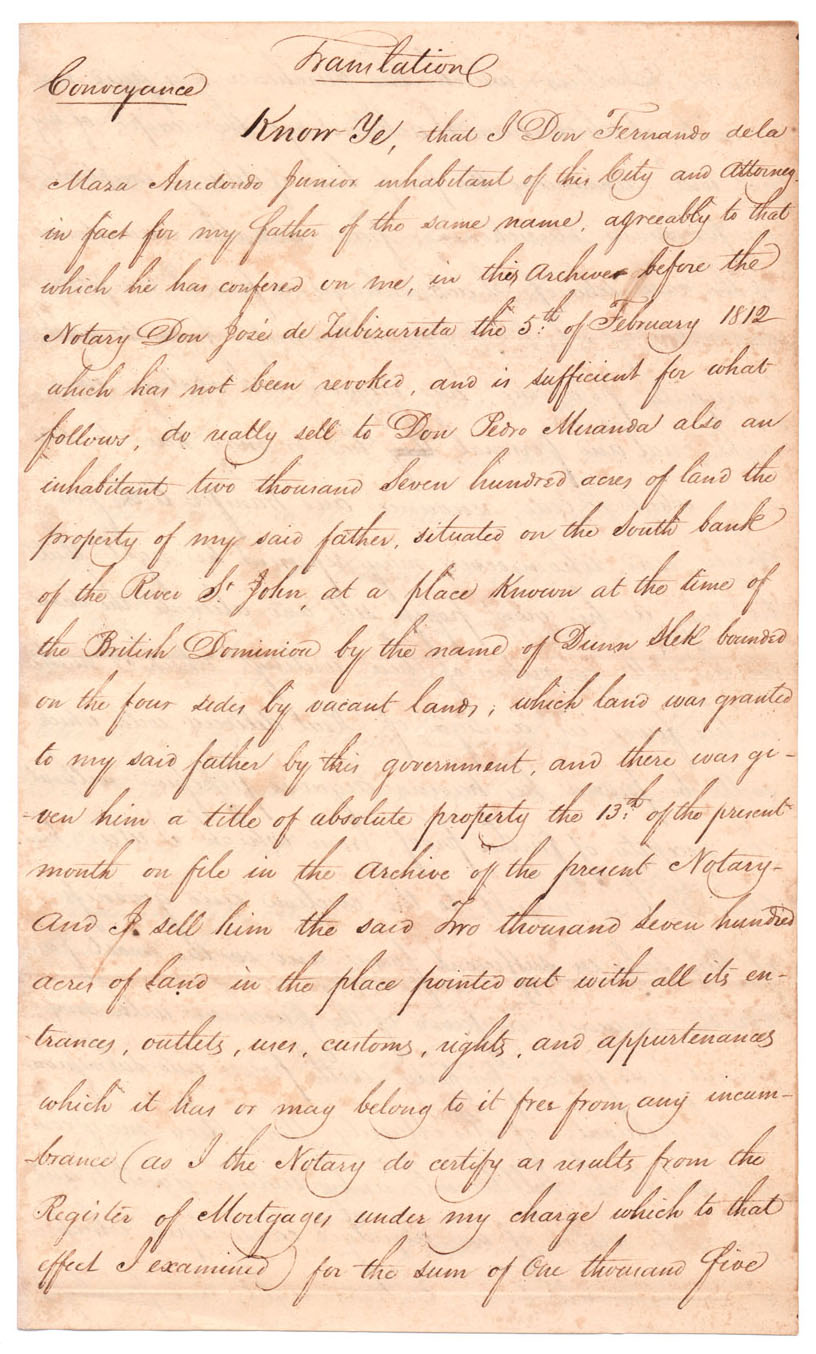 Translation
Conveyance
Know Ye, that I Don Fernando de la
Maza Arredondo Junior inhabitant of this City and Attorney
in fact for my father of the same name, agreeably to that
which he has confered on me, in this Archive before the
Notary Don José de Zubizarreta the 5th of February 1812
which has not been revoked, and is sufficient for what
follows, do really sell to Don Pedro Miranda also an
inhabitant two thousand Seven hundred acres of land the
property of my said father, situated on the South bank
of the River St John, at a place Known at the time of
the British Dominion by the name of Dunn bounded
on the four sides by vacant lands; which land was granted
to my said father by this government, and there was gi-
-ven him a title of absolute property the 13th of the present
month on file in the Archive of the present Notary-
And I sell him the said Two thousand Seven hundred
acres of Land in the place pointed out with all its en-
-trances, outlets, uses, customs, rights, and appurtenances
which it has or may belong to it free from any incum-
-brance (as I the Notary do certify as results from the
Register of Mortgages under my charge which to that
effect I examined) for the sum of One thousand five